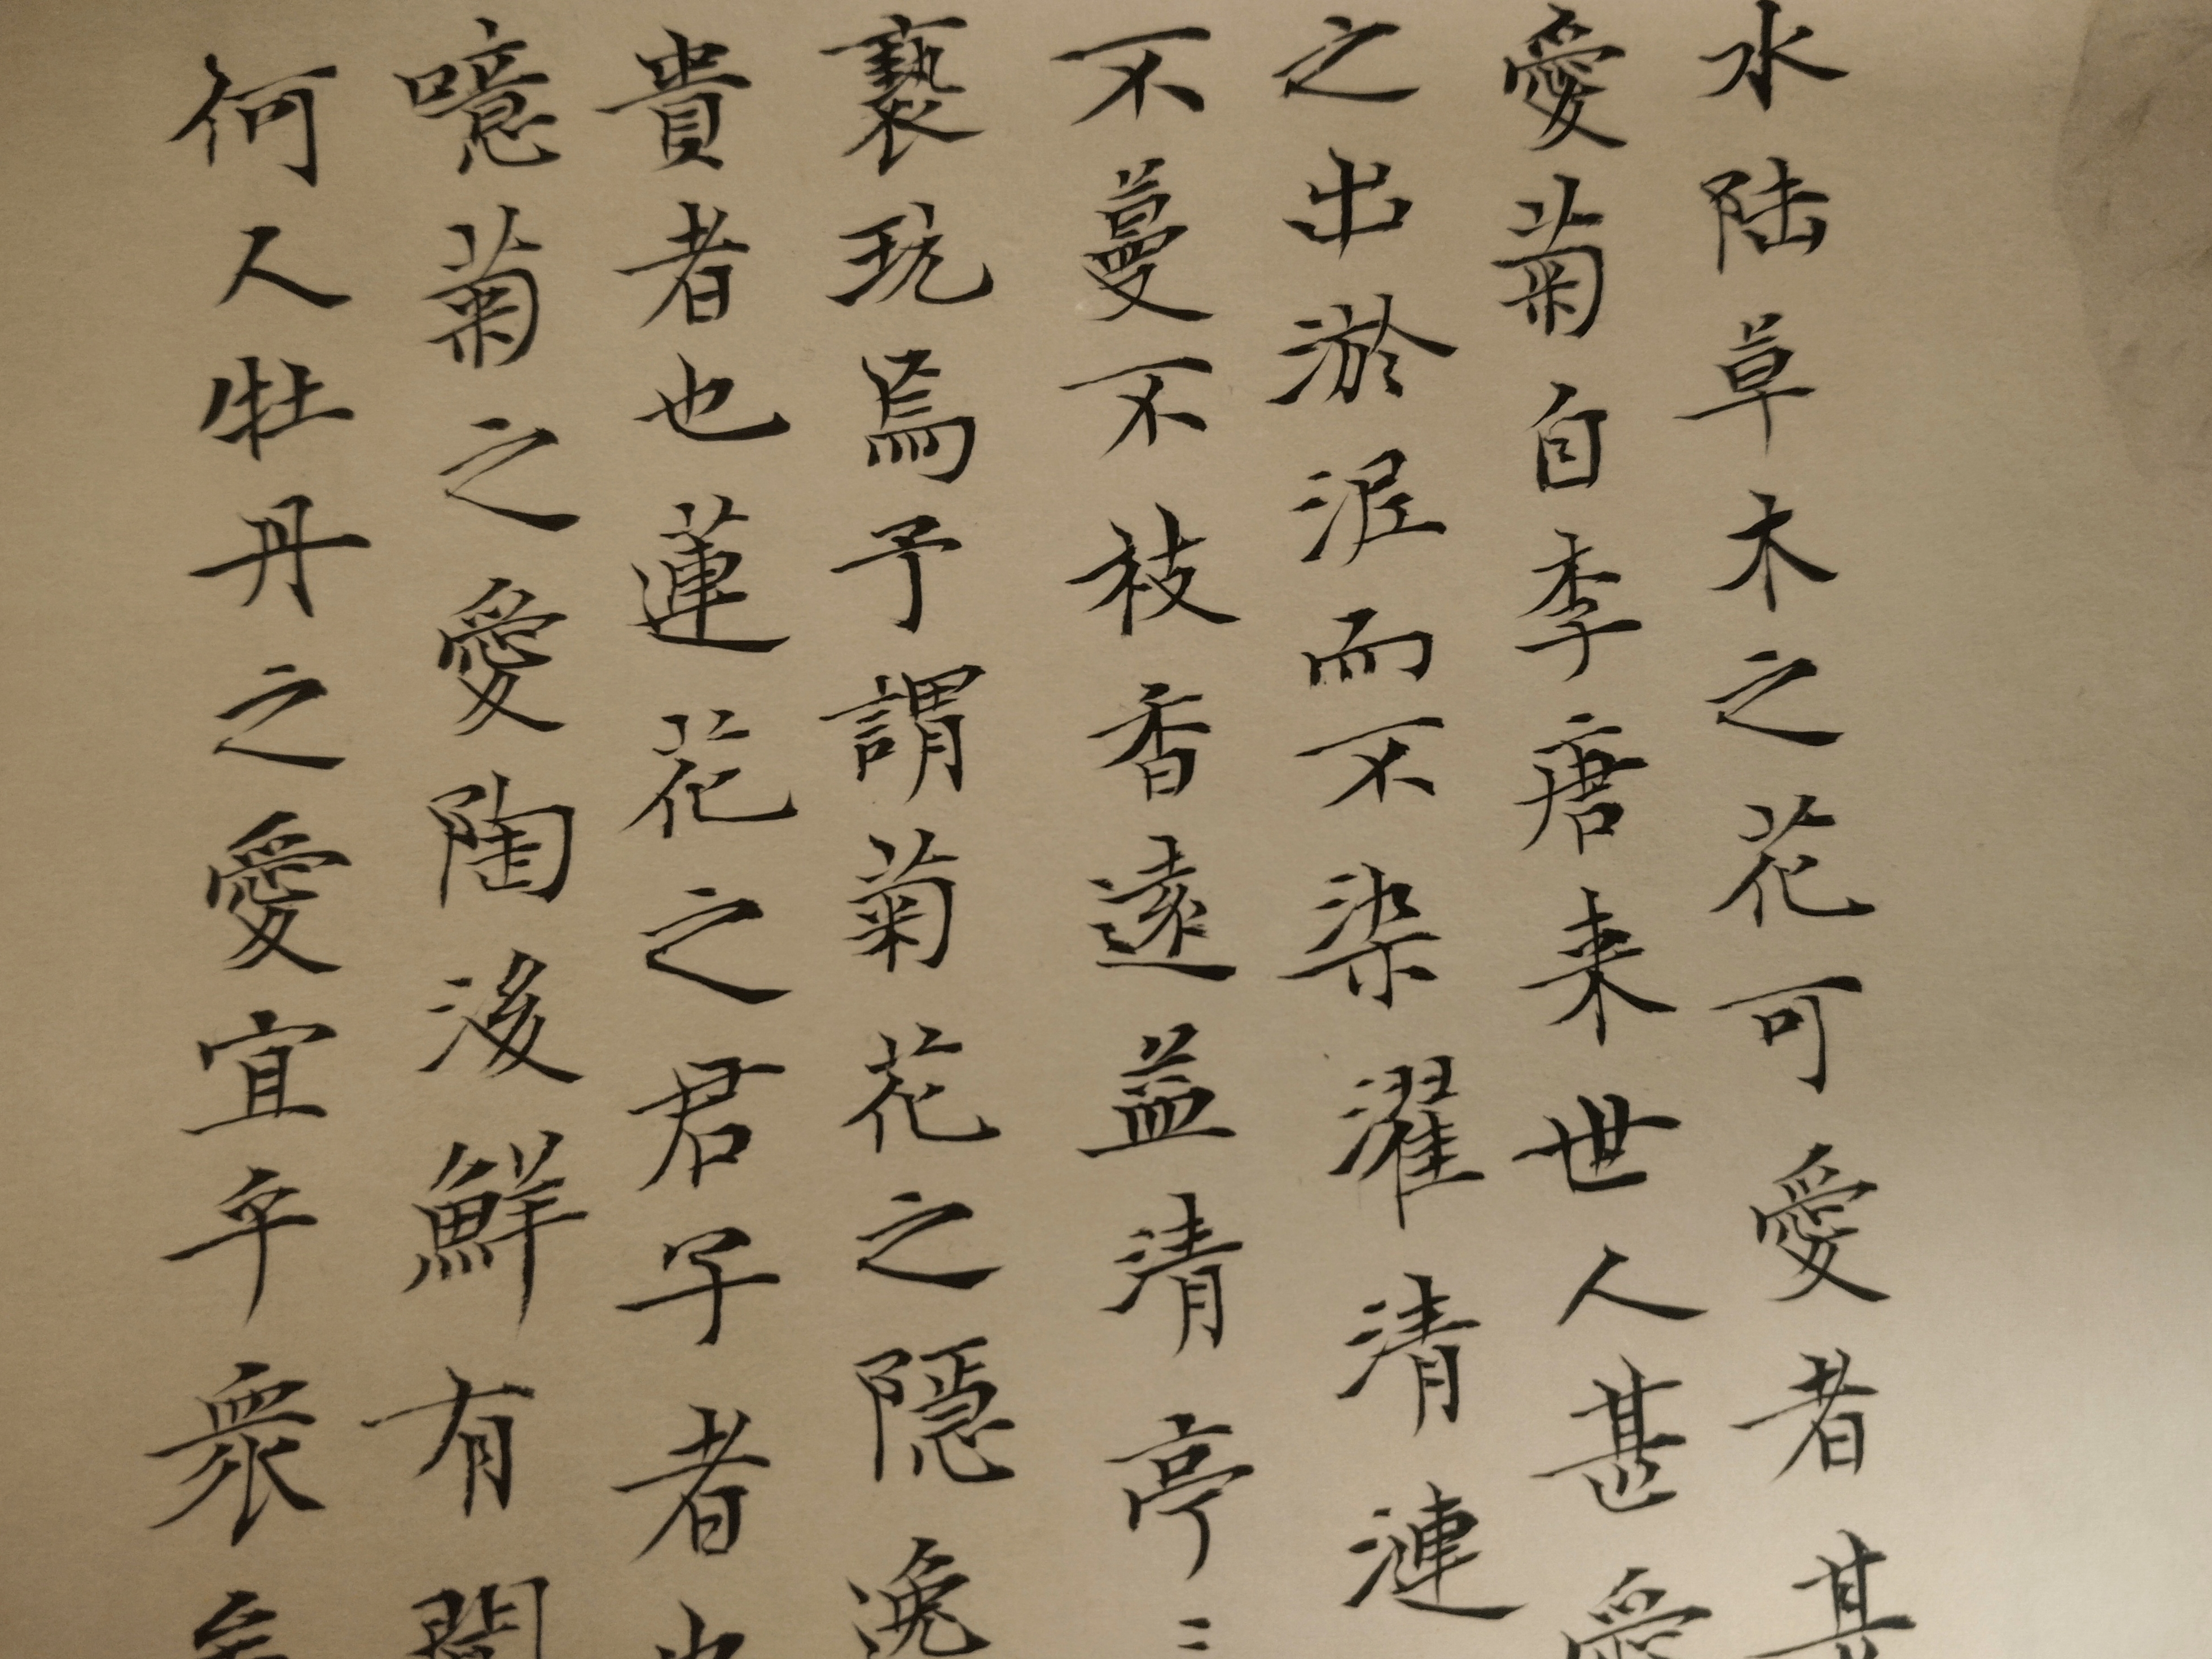 水陆草木之花可愛者甚
愛菊自李唐来世人甚愛
之出淤泥而不染濯清漣
不蔓不枝香遠益清亭〻
褻玩焉予謂菊花之隱逸
貴者也蓮花之君子者也
噫菊之愛陶後鮮有聞
何人牡丹之愛宜乎衆矣